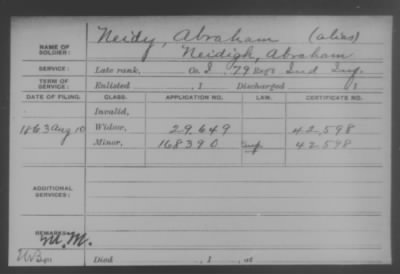 Neidy, Abraham (alias)
NAME OF SOLDIER: Neidigh, Abraham
SERVICE: Late rank, Co. I, 79 Reg't Ind Inf.
TERM OF SERVICE: Enlisted , 1 Discharged , 1
DATE OF FILING. CLASS. APPLICATION NO. LAW. CERTIFICATE NO.
Invalid,
1863 Aug 10 Widow, 29.649 42.598
Minor, 168390 42598
ADDITIONAL SERVICES:
REMARKS:
M.M.
Died , 1 , at